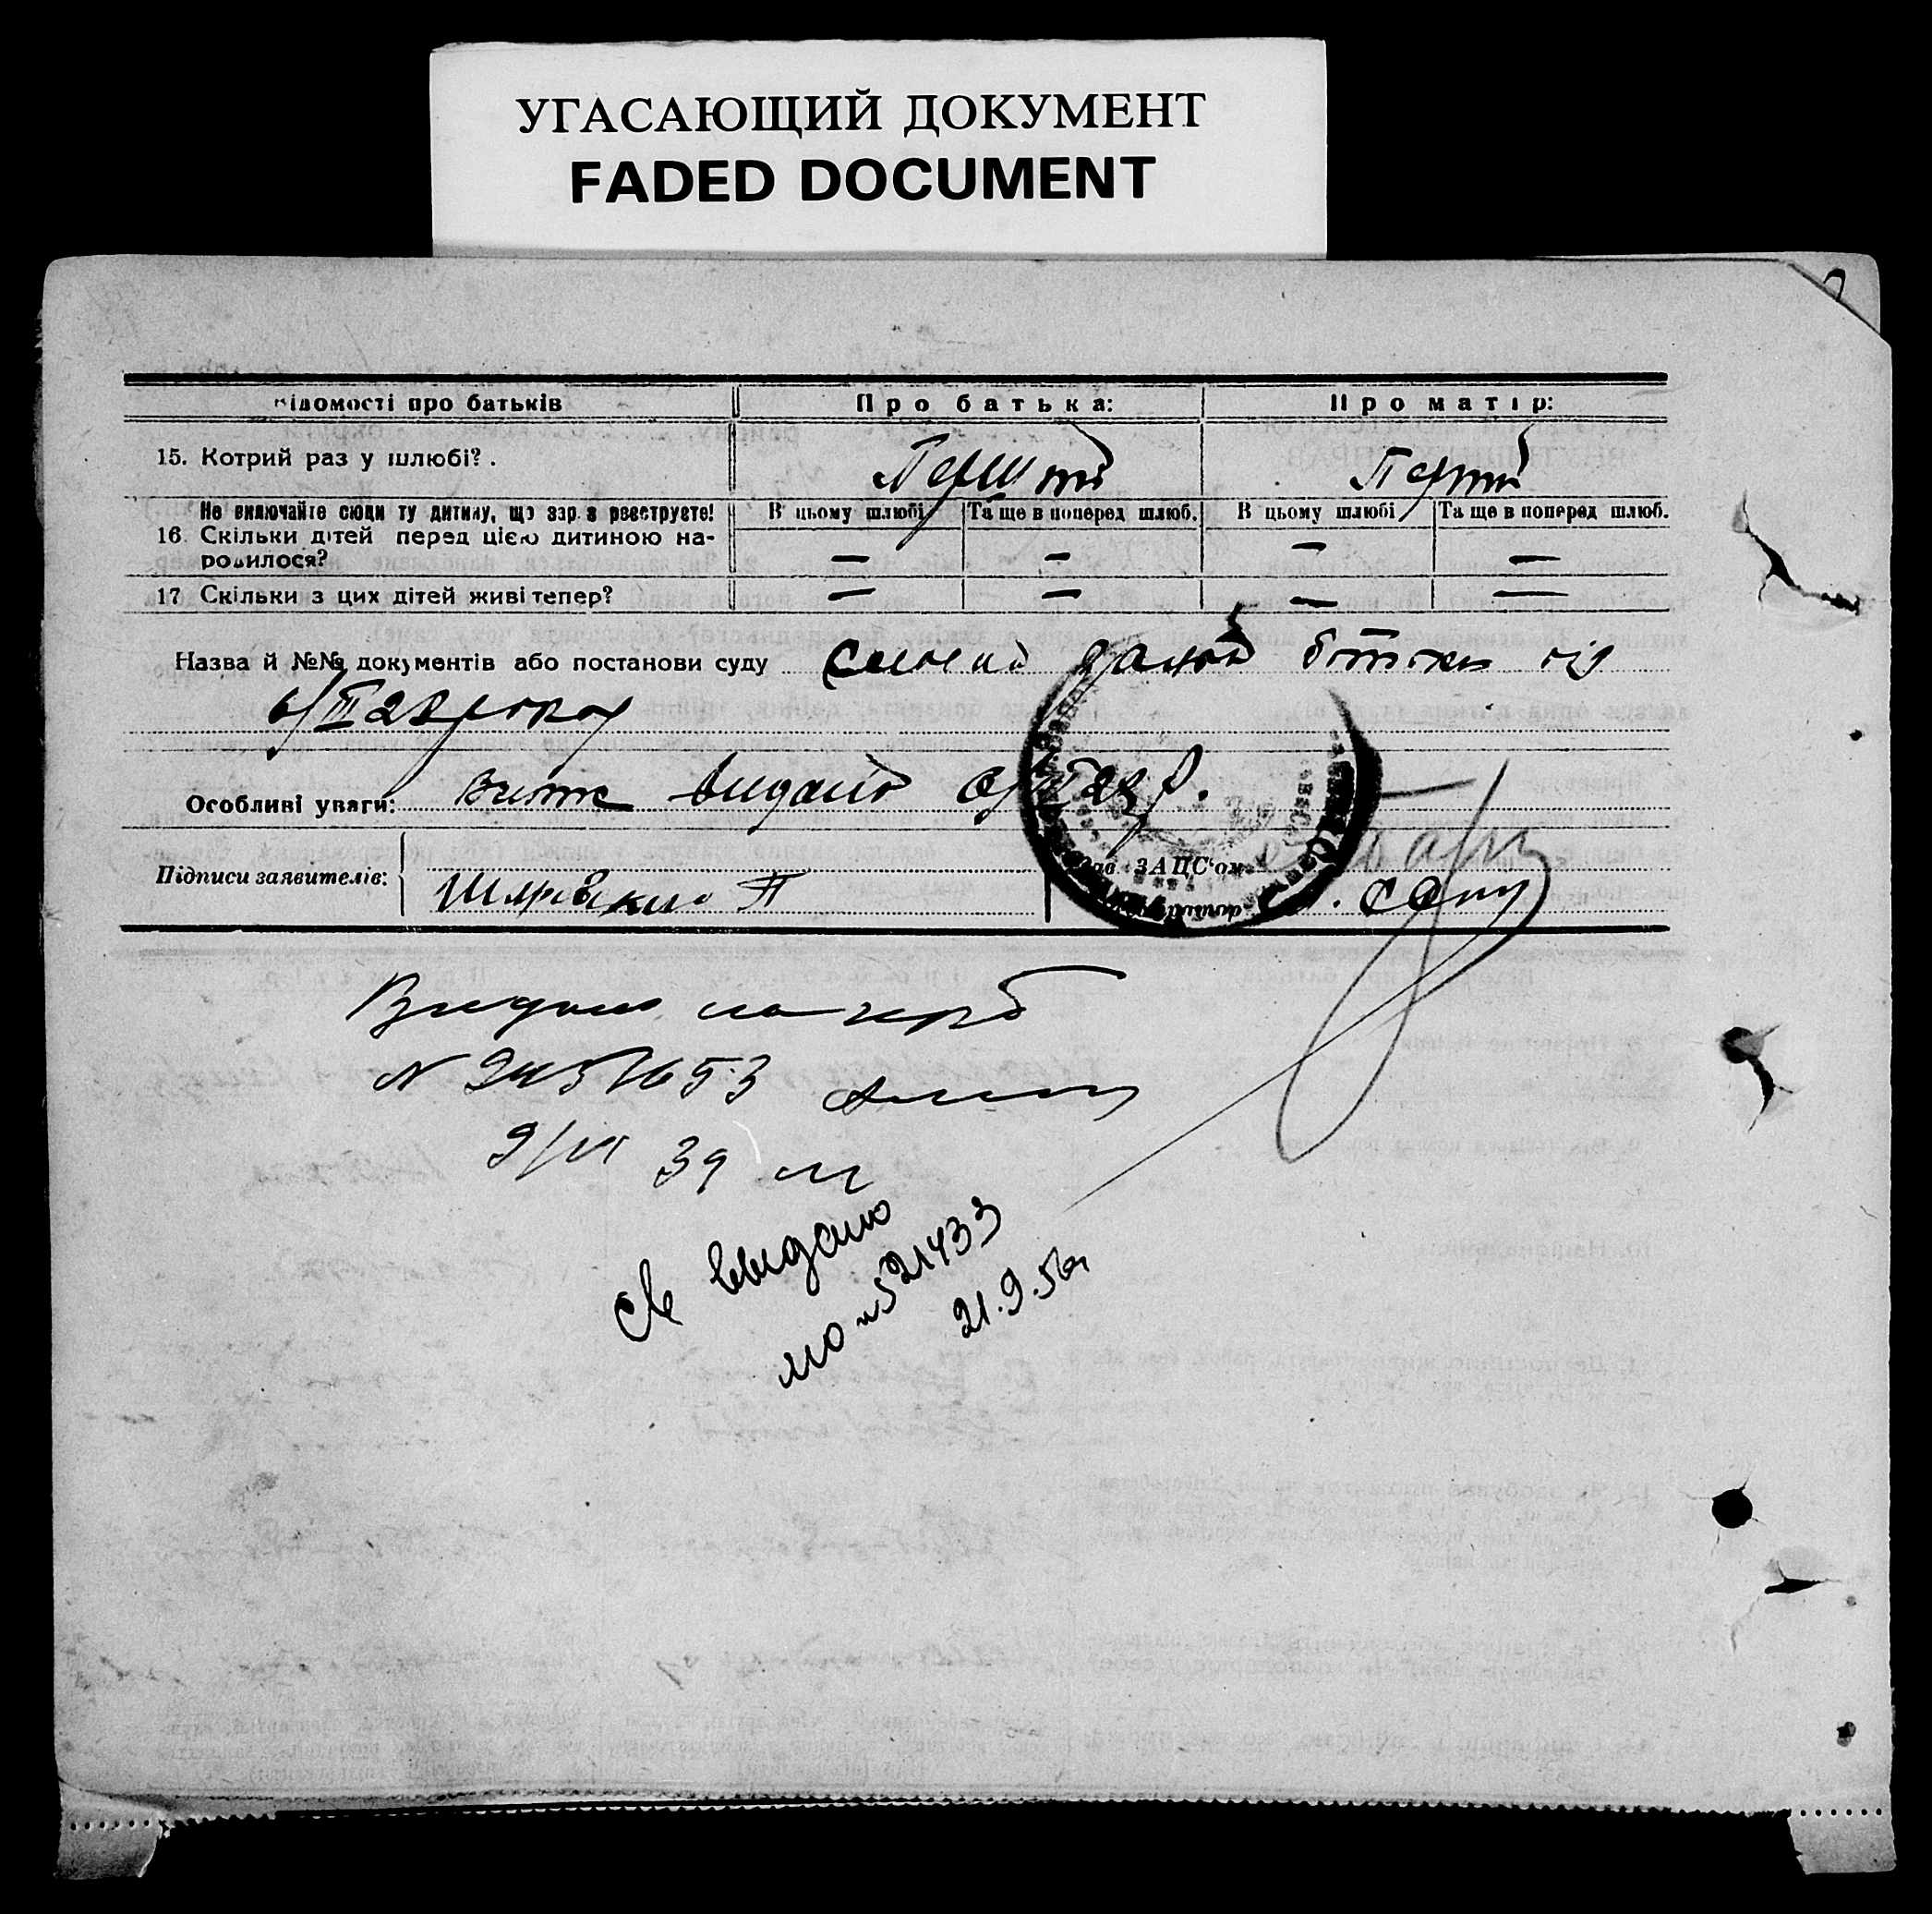 УГАСАЮЩИЙ ДОКУМЕНТ
FADED DOCUMENT
Відомості про батьків
Про батька:
Про матір:
15. Котрий раз у шлюбі?
Перший
Перший
Не виключайте сюди ту дитину, що зараз реєструєте!
16. Скільки дітей перед цією дитиною на-
родилося?
В цьому шлюбі
Та ще в поперед шлюб.
В цьому шлюбі
Та ще в поперед шлюб.
— — — —
17 Скільки з цих дітей живі тепер?
— — — —
Назва й №№ документів або постанови суду
6/III 28 року
Особливі уваги: Витяг видано 6/III 28 р.
Підписи заявителів:
Зав. ЗАЦС'ом
N 2451653
9/VI 39
Св выдано
МО N 521433
21.9.56г